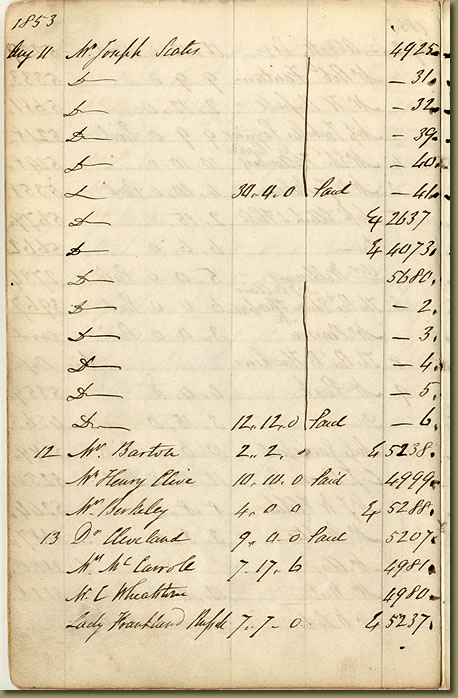 1853
Aug 11 Mr Joseph Scates 4925
Do — 31.
Do — 32
Do — 39.
Do — 40.
Do 34. 4. 0 Paid — 41.
Do & 2637
Do & 4073.
Do 5680.
Do — 2.
Do — 3.
Do — 4.
Do — 5.
Do 12. 12. 0 Paid — 6.
12 Mr. Barton 2. 2. 0 & 5238.
Mr Henry Clive 10. 10. 0 Paid 4999.
Mr Berkeley 4. 0 0 & 5288.
13 Dr Cleveland 9. 0 0 Paid 5207.
Mrs Mc Carrole 7. 17. 6 4981.
Mr C Wheatstone 4980.
Lady Frankland Russell 7. 7. 0 & 5237.